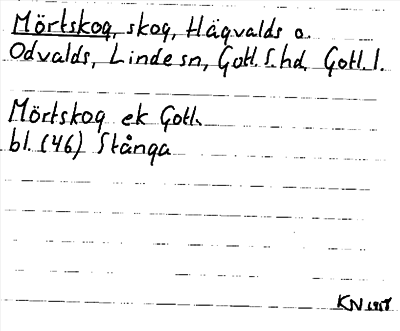 Mörtskog, skog, Hägvalds o.
Odvalds, Linde sn, Gotl. S. hd, Gotl. l.
Mörtskog ek Gotl.
bl. (46) Stånga
KN